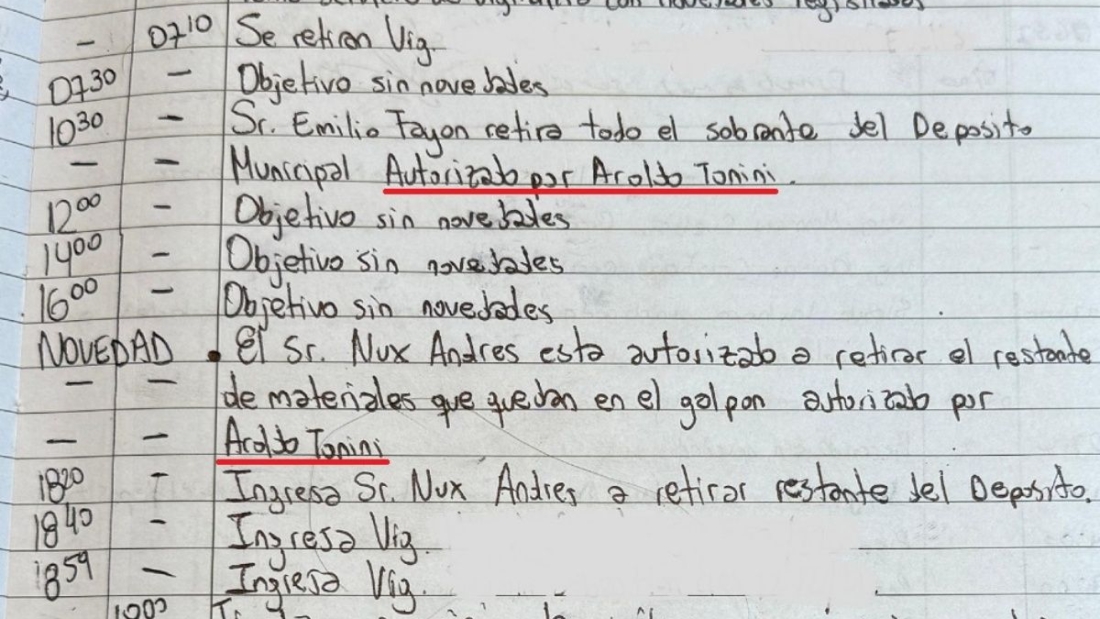 con novedades registradas
- 0710 Se retiran Vig.
0730 - Objetivo sin novedades
1030 - Sr. Emilio Fayon retira todo el sobrante del Deposito
- - Municipal Autorizado por Aroldo Tonini.
1200 - Objetivo sin novedades
1400 - Objetivo sin novedades
1600 - Objetivo sin novedades
NOVEDAD • El Sr. Nux Andres esta autorizado a retirar el restante
- - de materiales que quedan en el galpon autorizado por
- - Aroldo Tonini
1820 - Ingresa Sr. Nux Andres a retirar restante del Deposito.
1840 - Ingresa Vig.
1859 - Ingresa Vig.